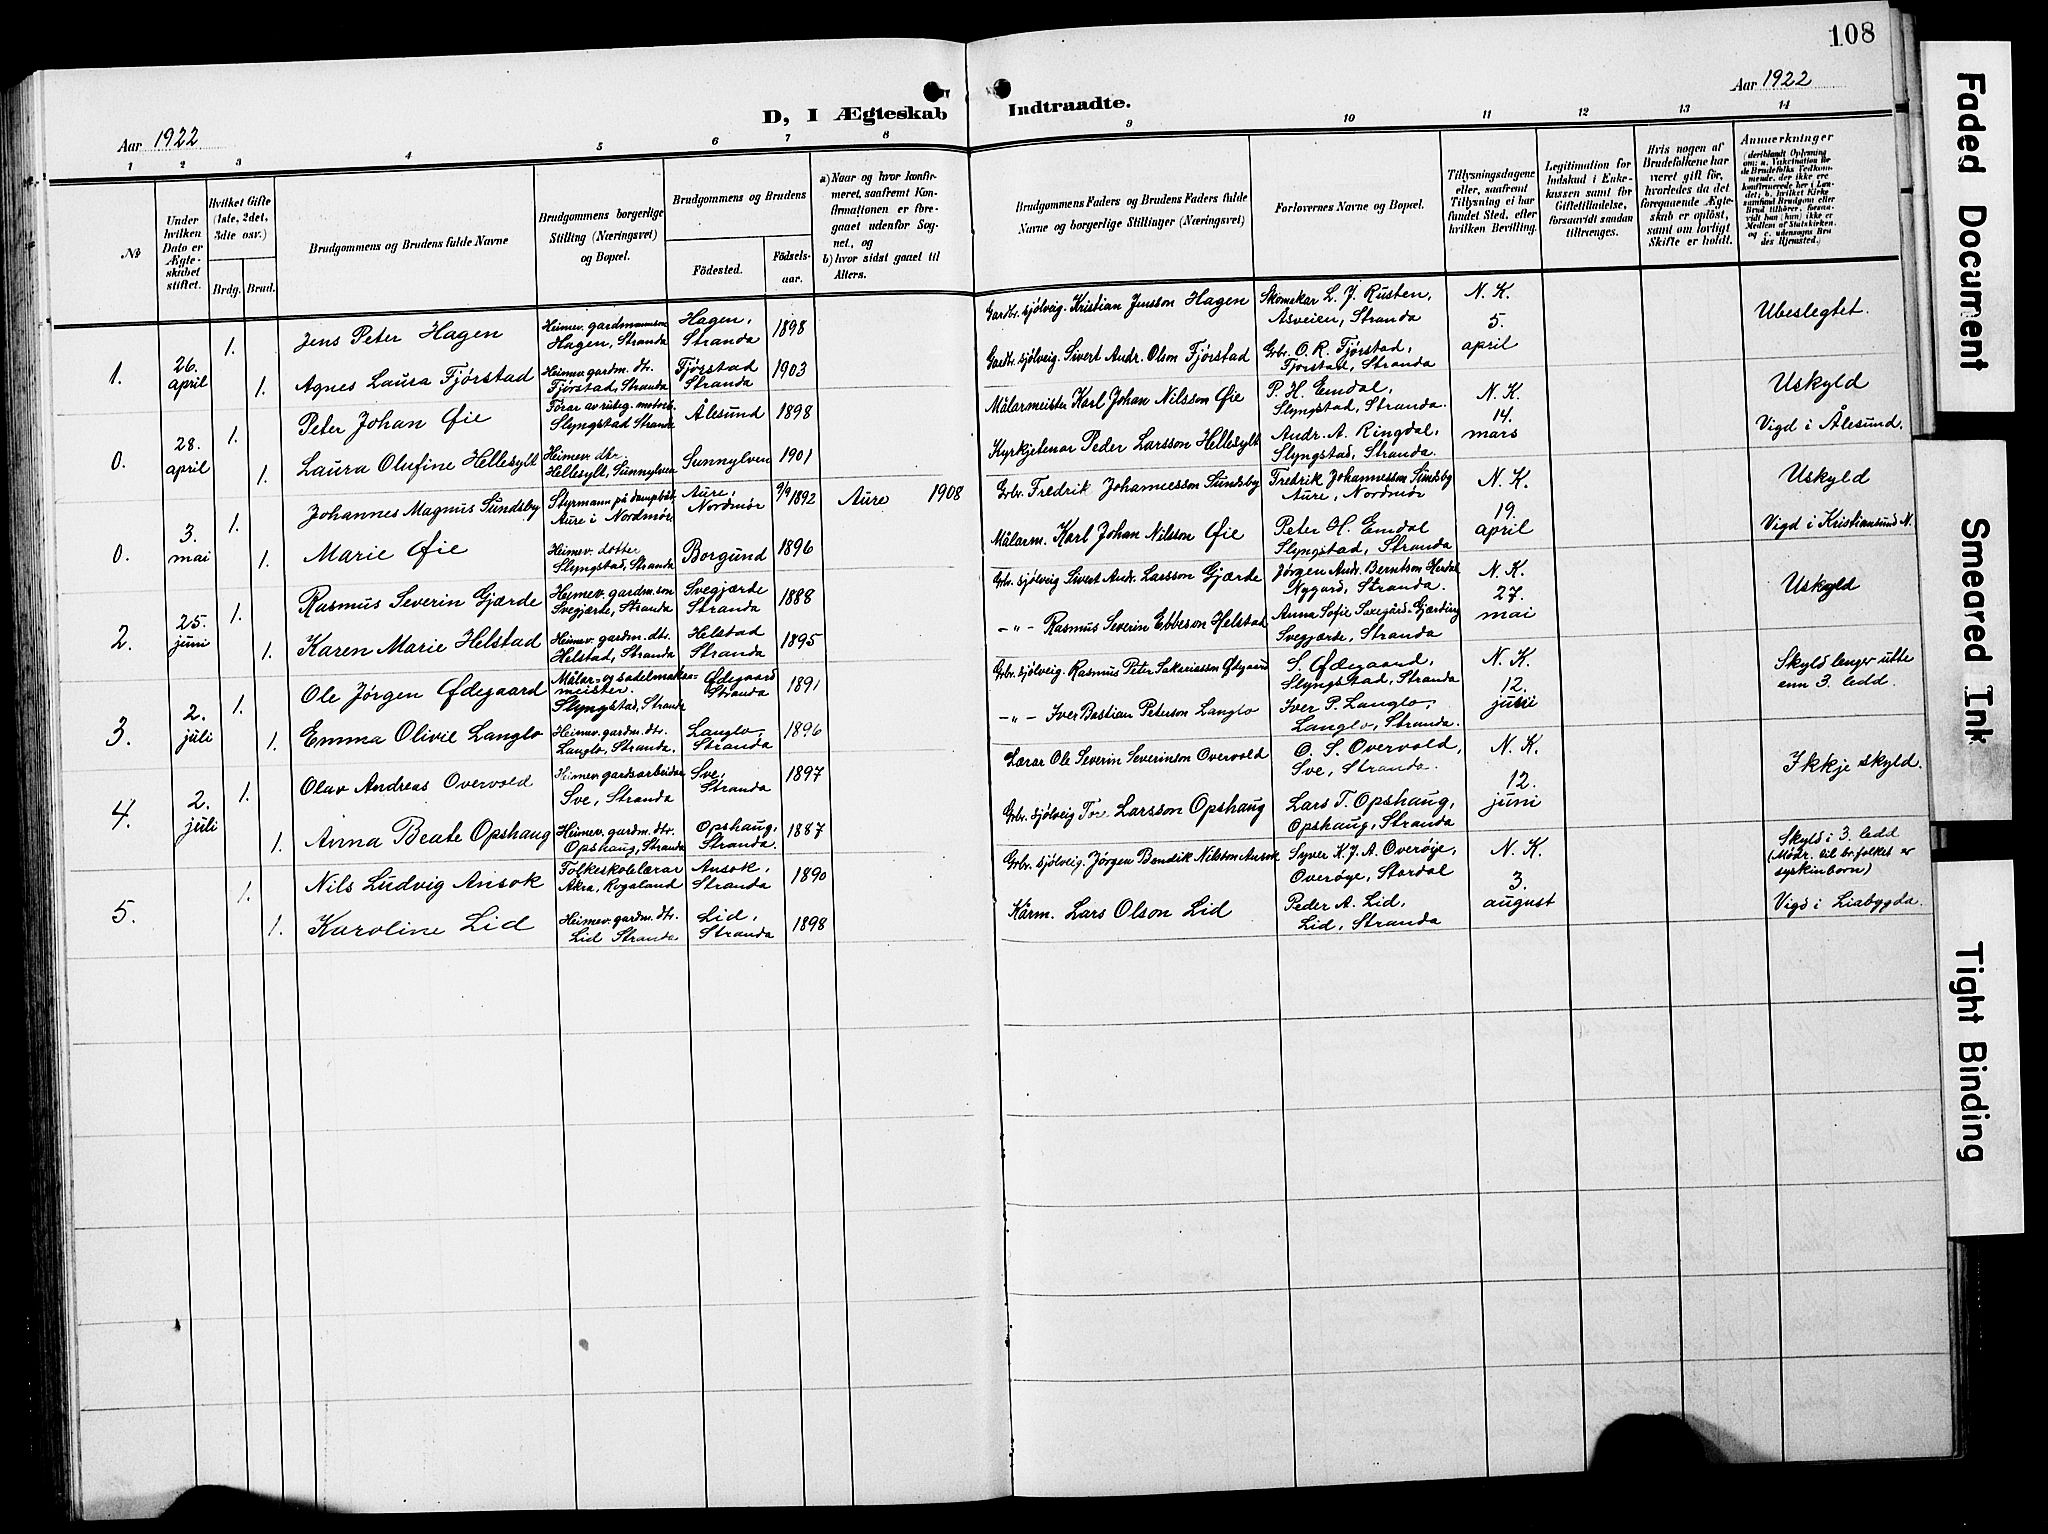 108
Aar 1922
D, I Ægteskab
Indtraadte.
Aar 1922
1 2 3 4 5 6 7 8
9 10 11 12 13 14
№
Under
hvilken
Dato er
Ægte-
skabet
stiftet.
Hvilket Gifte
(1ste, 2det,
3die osv.)
Brdg. Brud.
Brudgommens og Brudens fulde Navne
Brudgommens borgerlige
Stilling (Næringsvei)
og Bopæl.
Brudgommens og Brudens
Födested.
Födsels-
aar.
a) Naar og hvor konfir-
meret, saafremt Kon-
firmationen er fore-
gaaet udenfor Sog-
net, og
b) hvor sidst gaaet til
Alters.
Brudgommens Faders og Brudens Faders fulde
Navne og borgerlige Stillinger (Næringsvei)
Forlovernes Navne og Bopæl.
Tillysningsdagene
eller, saafremt
Tillysning ei har
fundet Sted, efter
hvilken Bevilling.
Legitimation for
Indskud i Enke-
kassen samt for
Giftetilladelse,
forsaavidt saadan
tiltrænges.
Hvis nogen af
Brudefolkene har
været gift før,
hvorledes da det
foregaaende Ægte-
skab er opløst,
samt om lovligt
Skifte er holdt.
Anmerkninger
(deriblandt Oplysning
om: a. Vakcination for
de Brudefolks Vedkom-
mende, der ikke ere
konfirmerede her i Lan-
det; b. hvilket Kirke-
samfund Brudgom eller
Brud tilhører, forsaa-
vidt han (hun) ikke er
Medlem af Statskirken,
og c. udensogns Bru-
des Hjemsted.)
1. 26. april
1. Jens Peter Hagen Heimev. gardmannson Hagen, Stranda Hagen, Stranda 1898
Gardbr. sjølveig. Kristian Jensson Hagen Skomakar L. J. Rusten, Åsveien, Stranda N. K. 5. april Ubeslegtet.
1. Agnes Laura Fjørstad Heimev. gardm. dtr. Fjørstad, Stranda Fjørstad Stranda 1903
Gardbr. sjølveig. Sivert Andr. Olson Fjørstad Grbr. O. R. Fjørstad, Fjørstad, Stranda
0. 28. april
1. Peter Johan Øie Førar av ruteg. motorb. Slyngstad Stranda Ålesund 1898
Målarmeister Karl Johan Nilsson Øie P. H. Emdal, Slyngstad, Stranda. N. K. 14. mars Uskyld
1. Laura Olufine Hellesylt Heimev. dtr. Hellesylt, Sunnylven Sunnylven 1901
Kyrkjetenar Peder Larsson Hellesylt Andr. A. Ringdal, Slyngstad, Stranda. Vigd i Ålesund.
0. 3. mai
1. Johannes Magnus Sundsby Styrmann på dampbåt Aure i Nordmøre Aure, Nordmør 9/9 1892 Aure 1908
Grbr. Fredrik Johannesson Sundsby Fredrik Johannesson Sundsby Aure, Nordmør N. K. 19. april Uskyld
1. Marie Øie Heimev. dotter Slyngstad, Stranda Borgund 1896
Målarm. Karl Johan Nilsson Øie Peter H. Emdal Slyngstad, Stranda Vigd i Kristiansund N.
2. 25. juni
1. Rasmus Severin Gjærde Heimev. gardm. son Svegjærde, Stranda Svegjærde Stranda 1888
Grbr. sjølveig Sivert Andr. Larsson Gjærde Jørgen Andr. Berntson Herdal Nygard, Stranda. N. K. 27. mai Uskyld
1. Karen Marie Helstad Heimev. gardm. dtr. Helstad, Stranda Helstad Stranda 1895
-"- Rasmus Severin Ebbeson Helstad Anna Sofie Saxegård-Gjærding Svegjærde, Stranda
3. 2. juli
1. Ole Jørgen Ødegaard Målar- og sadelmakar-meister. Slyngstad, Stranda Ødegaard Stranda 1891
Grbr. sjølveig. Rasmus Peter Sakariassen Ødegaard S. Ødegaard, Slyngstad, Stranda N. K. 12. juni Skyld lenger utte enn 3. ledd.
1. Emma Olivie Langlo Heimev. gardm. dtr. Langlo, Stranda. Langlo, Stranda 1896
-"- Iver Bastian Peterson Langlo Iver P. Langlo, Langlo, Stranda.
4. 2. juli
1. Olav Andreas Overvold Heimev. gardsarbeidar Sve, Stranda Sve, Stranda 1897
Lærar Ole Severin Severinson Overvold O. S. Overvold, Sve, Stranda. N. K. 12. juni Ikkje skyld.
1. Anna Beate Opshaug Heimev. gardm. dtr. Opshaug, Stranda Opshaug, Stranda. 1887
Grbr. sjølveig Tore Larsson Opshaug Lars T. Opshaug, Opshaug, Stranda
5.
1. Nils Ludvig Ansok Folkeskolelærar Åkra, Rogaland Ansok, Stranda 1890
Grbr. sjølveig. Jørgen Bendik Nilsson Ansok Syver K. J. A. Overøye, Overøye, Stordal N. K. 3. august Skyld i 3. ledd (Mødr. til br.folket er syskinborn)
1. Karoline Lid Heimev. gardm. dtr. Lid Stranda Lid, Stranda 1898
Kårm. Lars Olson Lid Peder A. Lid, Lid, Stranda Vigd i Liabygda.
Faded Document
Smeared Ink
Tight Binding